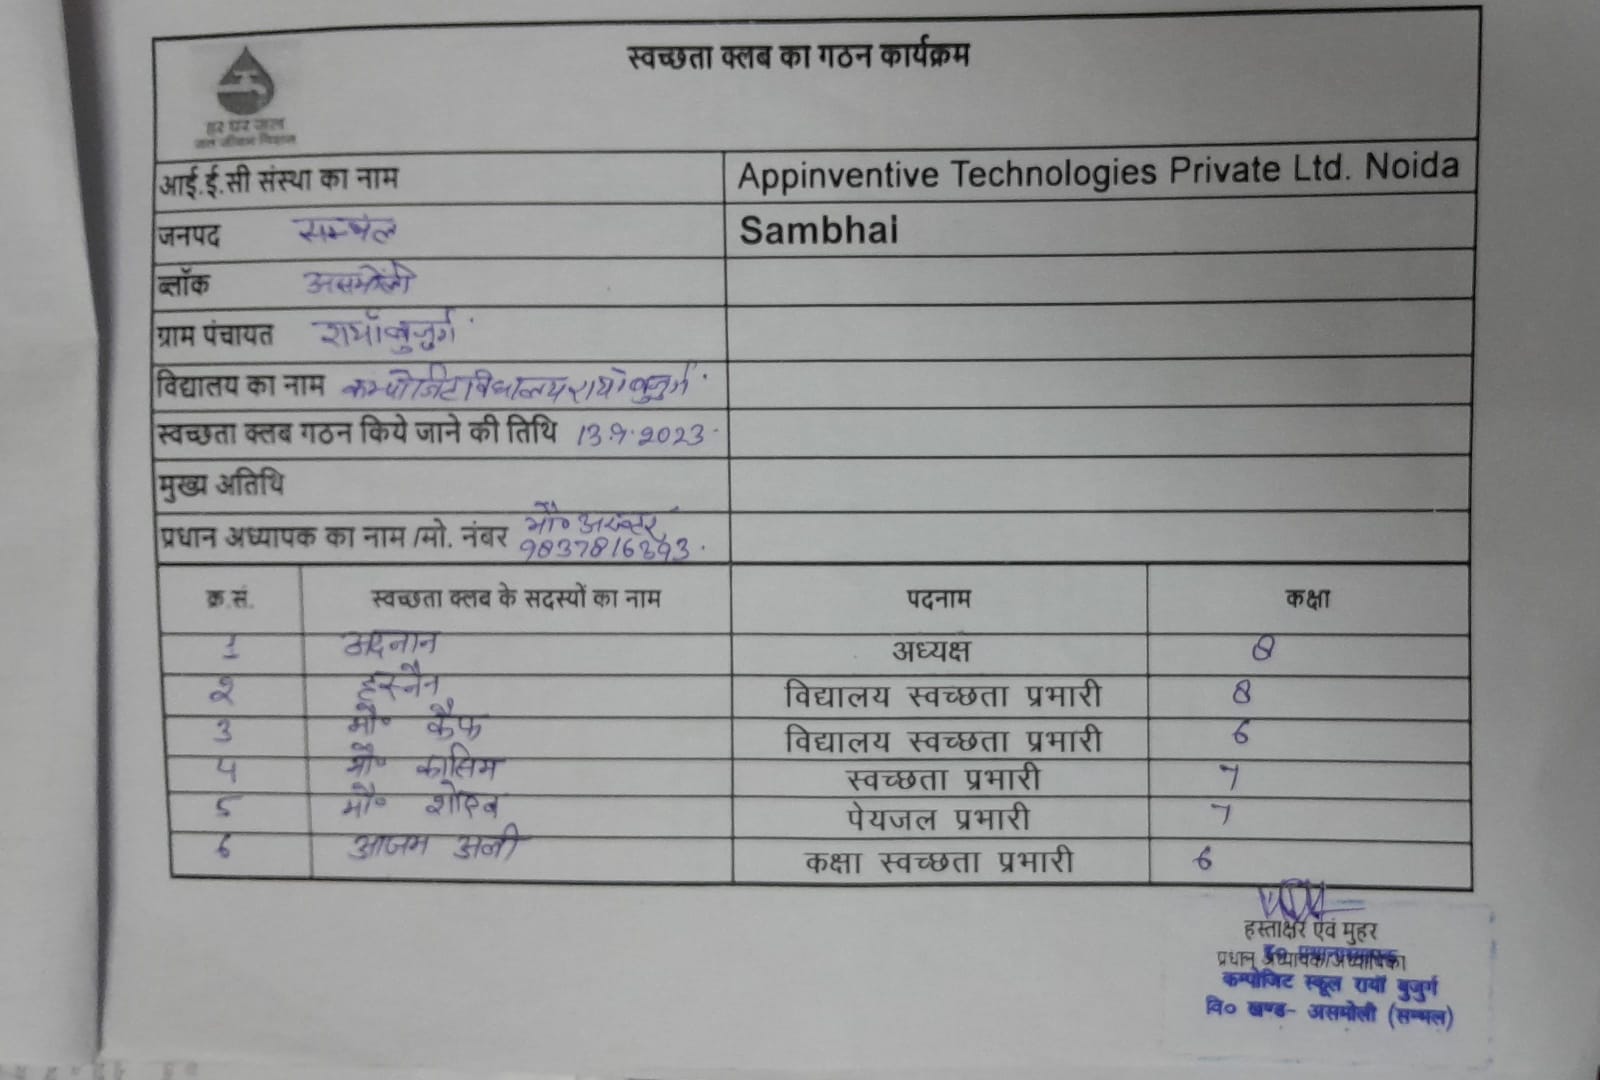 स्वच्छता क्लब का गठन कार्यक्रम
हर घर जल
जल जीवन मिशन
आई.ई.सी संस्था का नाम Appinventive Technologies Private Ltd. Noida
जनपद सम्भल Sambhal
ब्लॉक असमोली
ग्राम पंचायत रायाँ बुजुर्ग
विद्यालय का नाम कम्पोजिट विद्यालय रायाँ बुजुर्ग
स्वच्छता क्लब गठन किये जाने की तिथि 13.9.2023
मुख्य अतिथि
प्रधान अध्यापक का नाम /मो. नंबर मौ० अख्तर
क्र.सं. स्वच्छता क्लब के सदस्यों का नाम पदनाम कक्षा
1 अदनान अध्यक्ष 8
2 हस्नैन विद्यालय स्वच्छता प्रभारी 8
3 मौ० कैफ विद्यालय स्वच्छता प्रभारी 6
4 मौ० कासिम स्वच्छता प्रभारी 7
5 मौ० शोएब पेयजल प्रभारी 7
6 आजम अली कक्षा स्वच्छता प्रभारी 6
हस्ताक्षर एवं मुहर
प्रधान अध्यापक/अध्यापिका
कम्पोजिट स्कूल रायाँ बुजुर्ग
वि० खण्ड- असमोली (सम्भल)